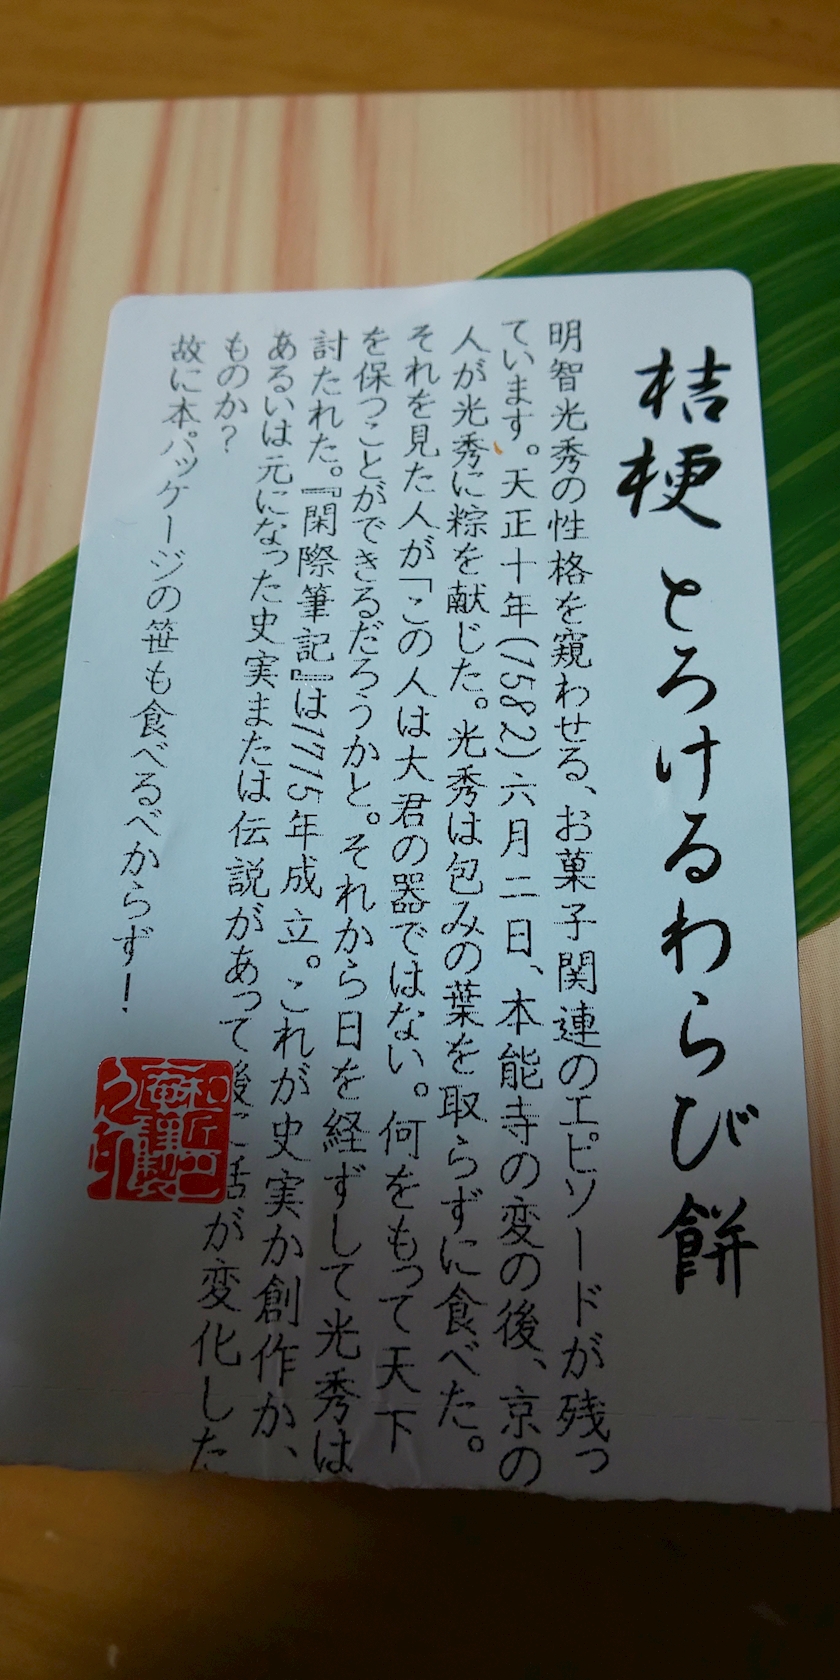 桔梗 とろけるわらび餅
明智光秀の性格を窺わせる、お菓子関連のエピソードが残っ
ています。天正十年(1582)六月二日、本能寺の変の後、京の
人が光秀に粽を献じた。光秀は包みの葉を取らずに食べた。
それを見た人が「この人は大君の器ではない。何をもって天下
を保つことができるだろうかと。それから日を経ずして光秀は
討たれた。『閑際筆記』は1715年成立。これが史実か創作か、
あるいは元になった史実または伝説があって後に話が変化した
ものか?
故に本パッケージの笹も食べるべからず!